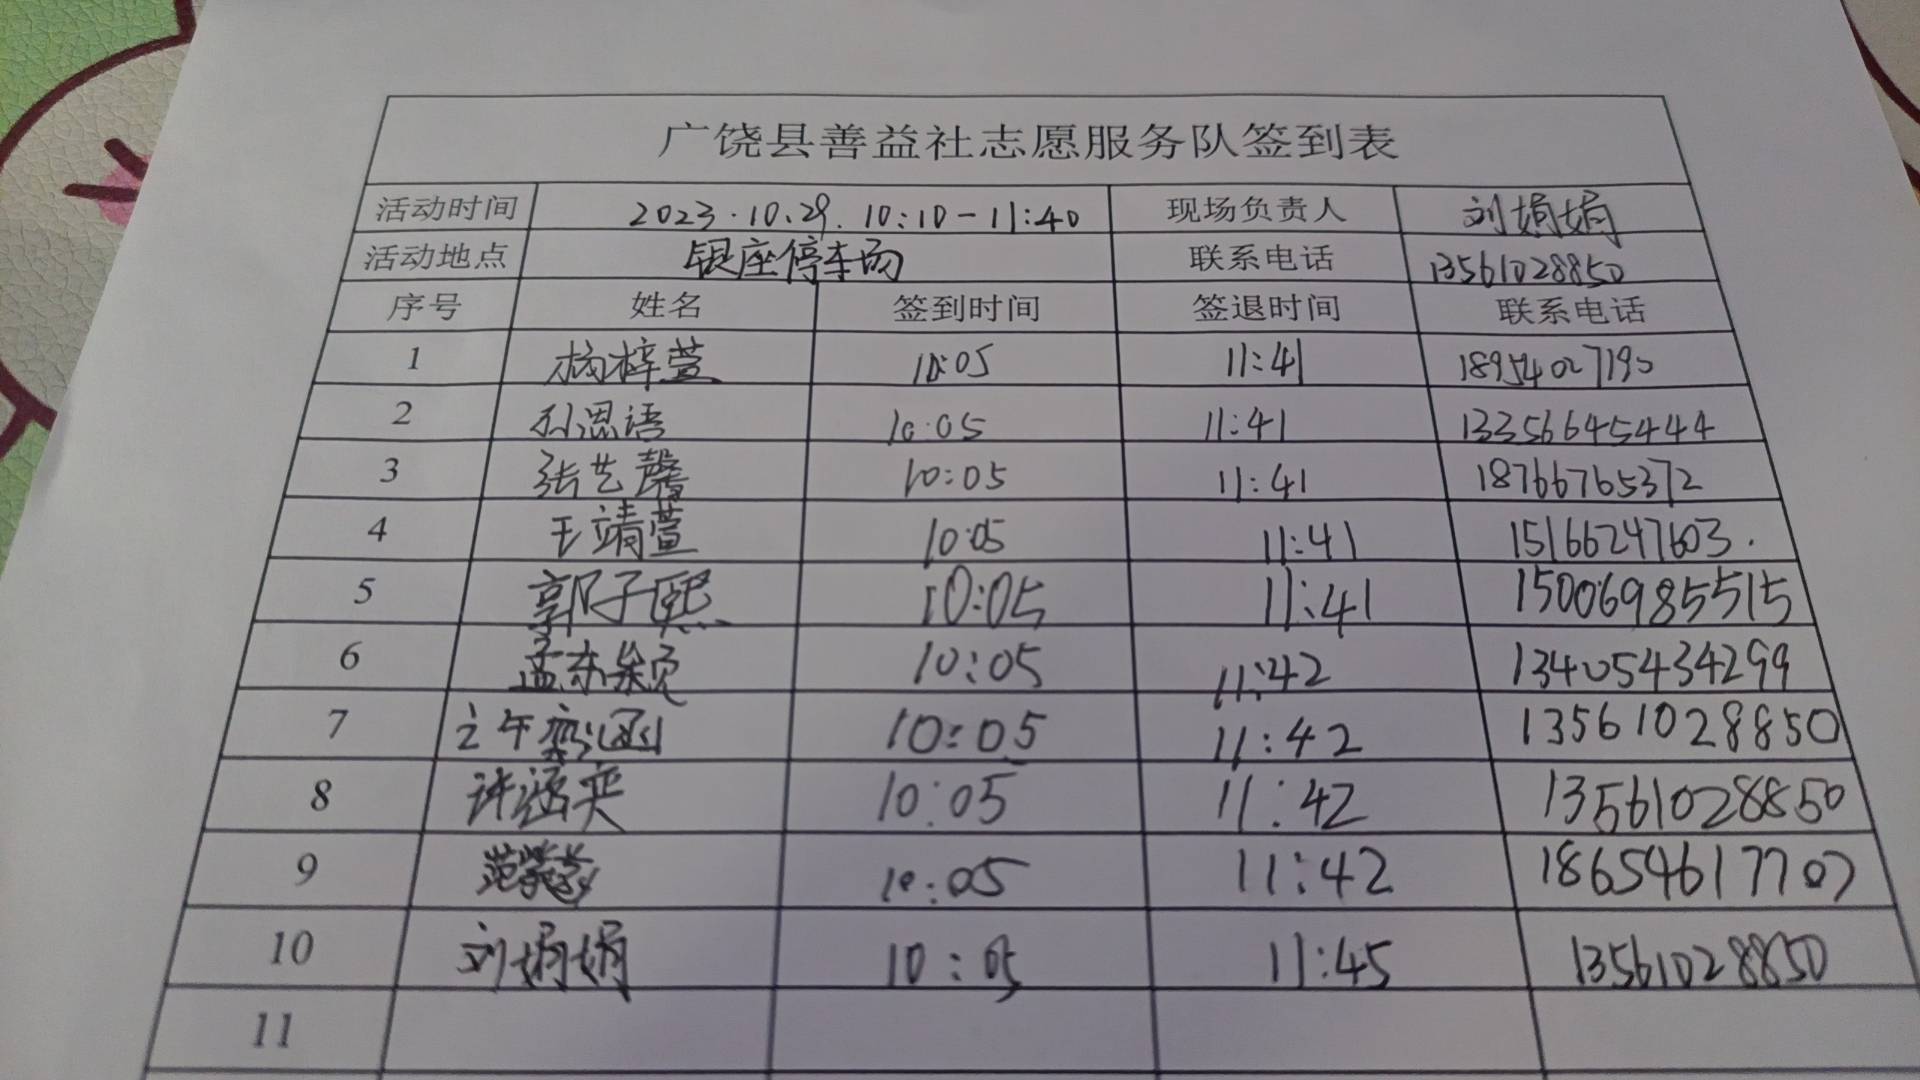 广饶县善益社志愿服务队签到表
活动时间 2023.10.29. 10:10-11:40 现场负责人 刘娟娟
活动地点 银座停车场 联系电话 13561028850
序号 姓名 签到时间 签退时间 联系电话
1 杨梓萱 10:05 11:41 18954027190
2 孙思语 10:05 11:41 13356645444
3 张艺馨 10:05 11:41 18766765372
4 王靖萱 10:05 11:41 15166247603.
5 郭子熙 10:05 11:41 15006985515
6 孟东颖 10:05 11:42 13405434299
7 10:05 11:42 13561028850
8 许涵奕 10:05 11:42 13561028850
9 10:05 11:42 18654617707
10 刘娟娟 10:05 11:45 13561028850
11